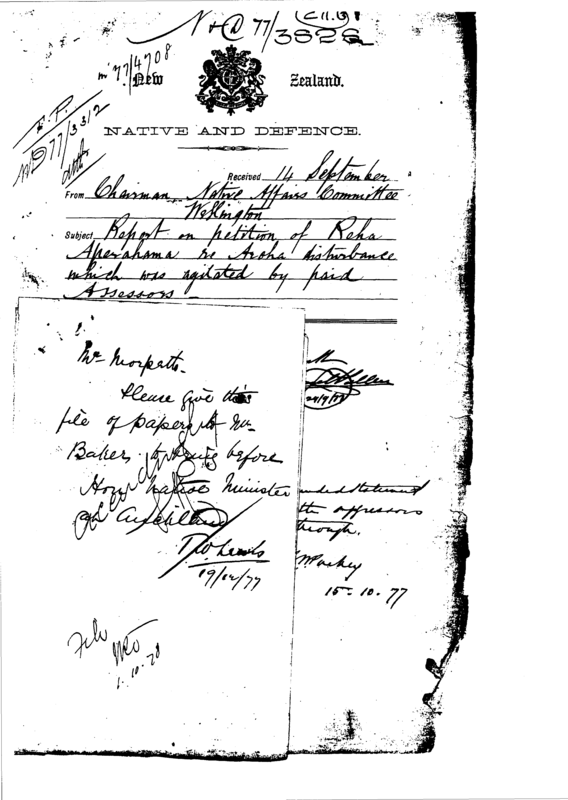 N & D 77/3826
77/4708
New Zealand.
F.P.
ND 77/3312
NATIVE AND DEFENCE.
Received 14 September
From Chairman Native Affairs Committee
Wellington
Subject Report on petition of Reha
Aperahama re Aroha disturbance
which was agitated by paid
Assessors —
Mr Morpeth.
Please give this
file of papers to Mr
Baker to bring before
Hon Native Minister
at Auckland
T.W. Lewis
19/12/77
File
1.10.78
statement
the
through.
15-10.77